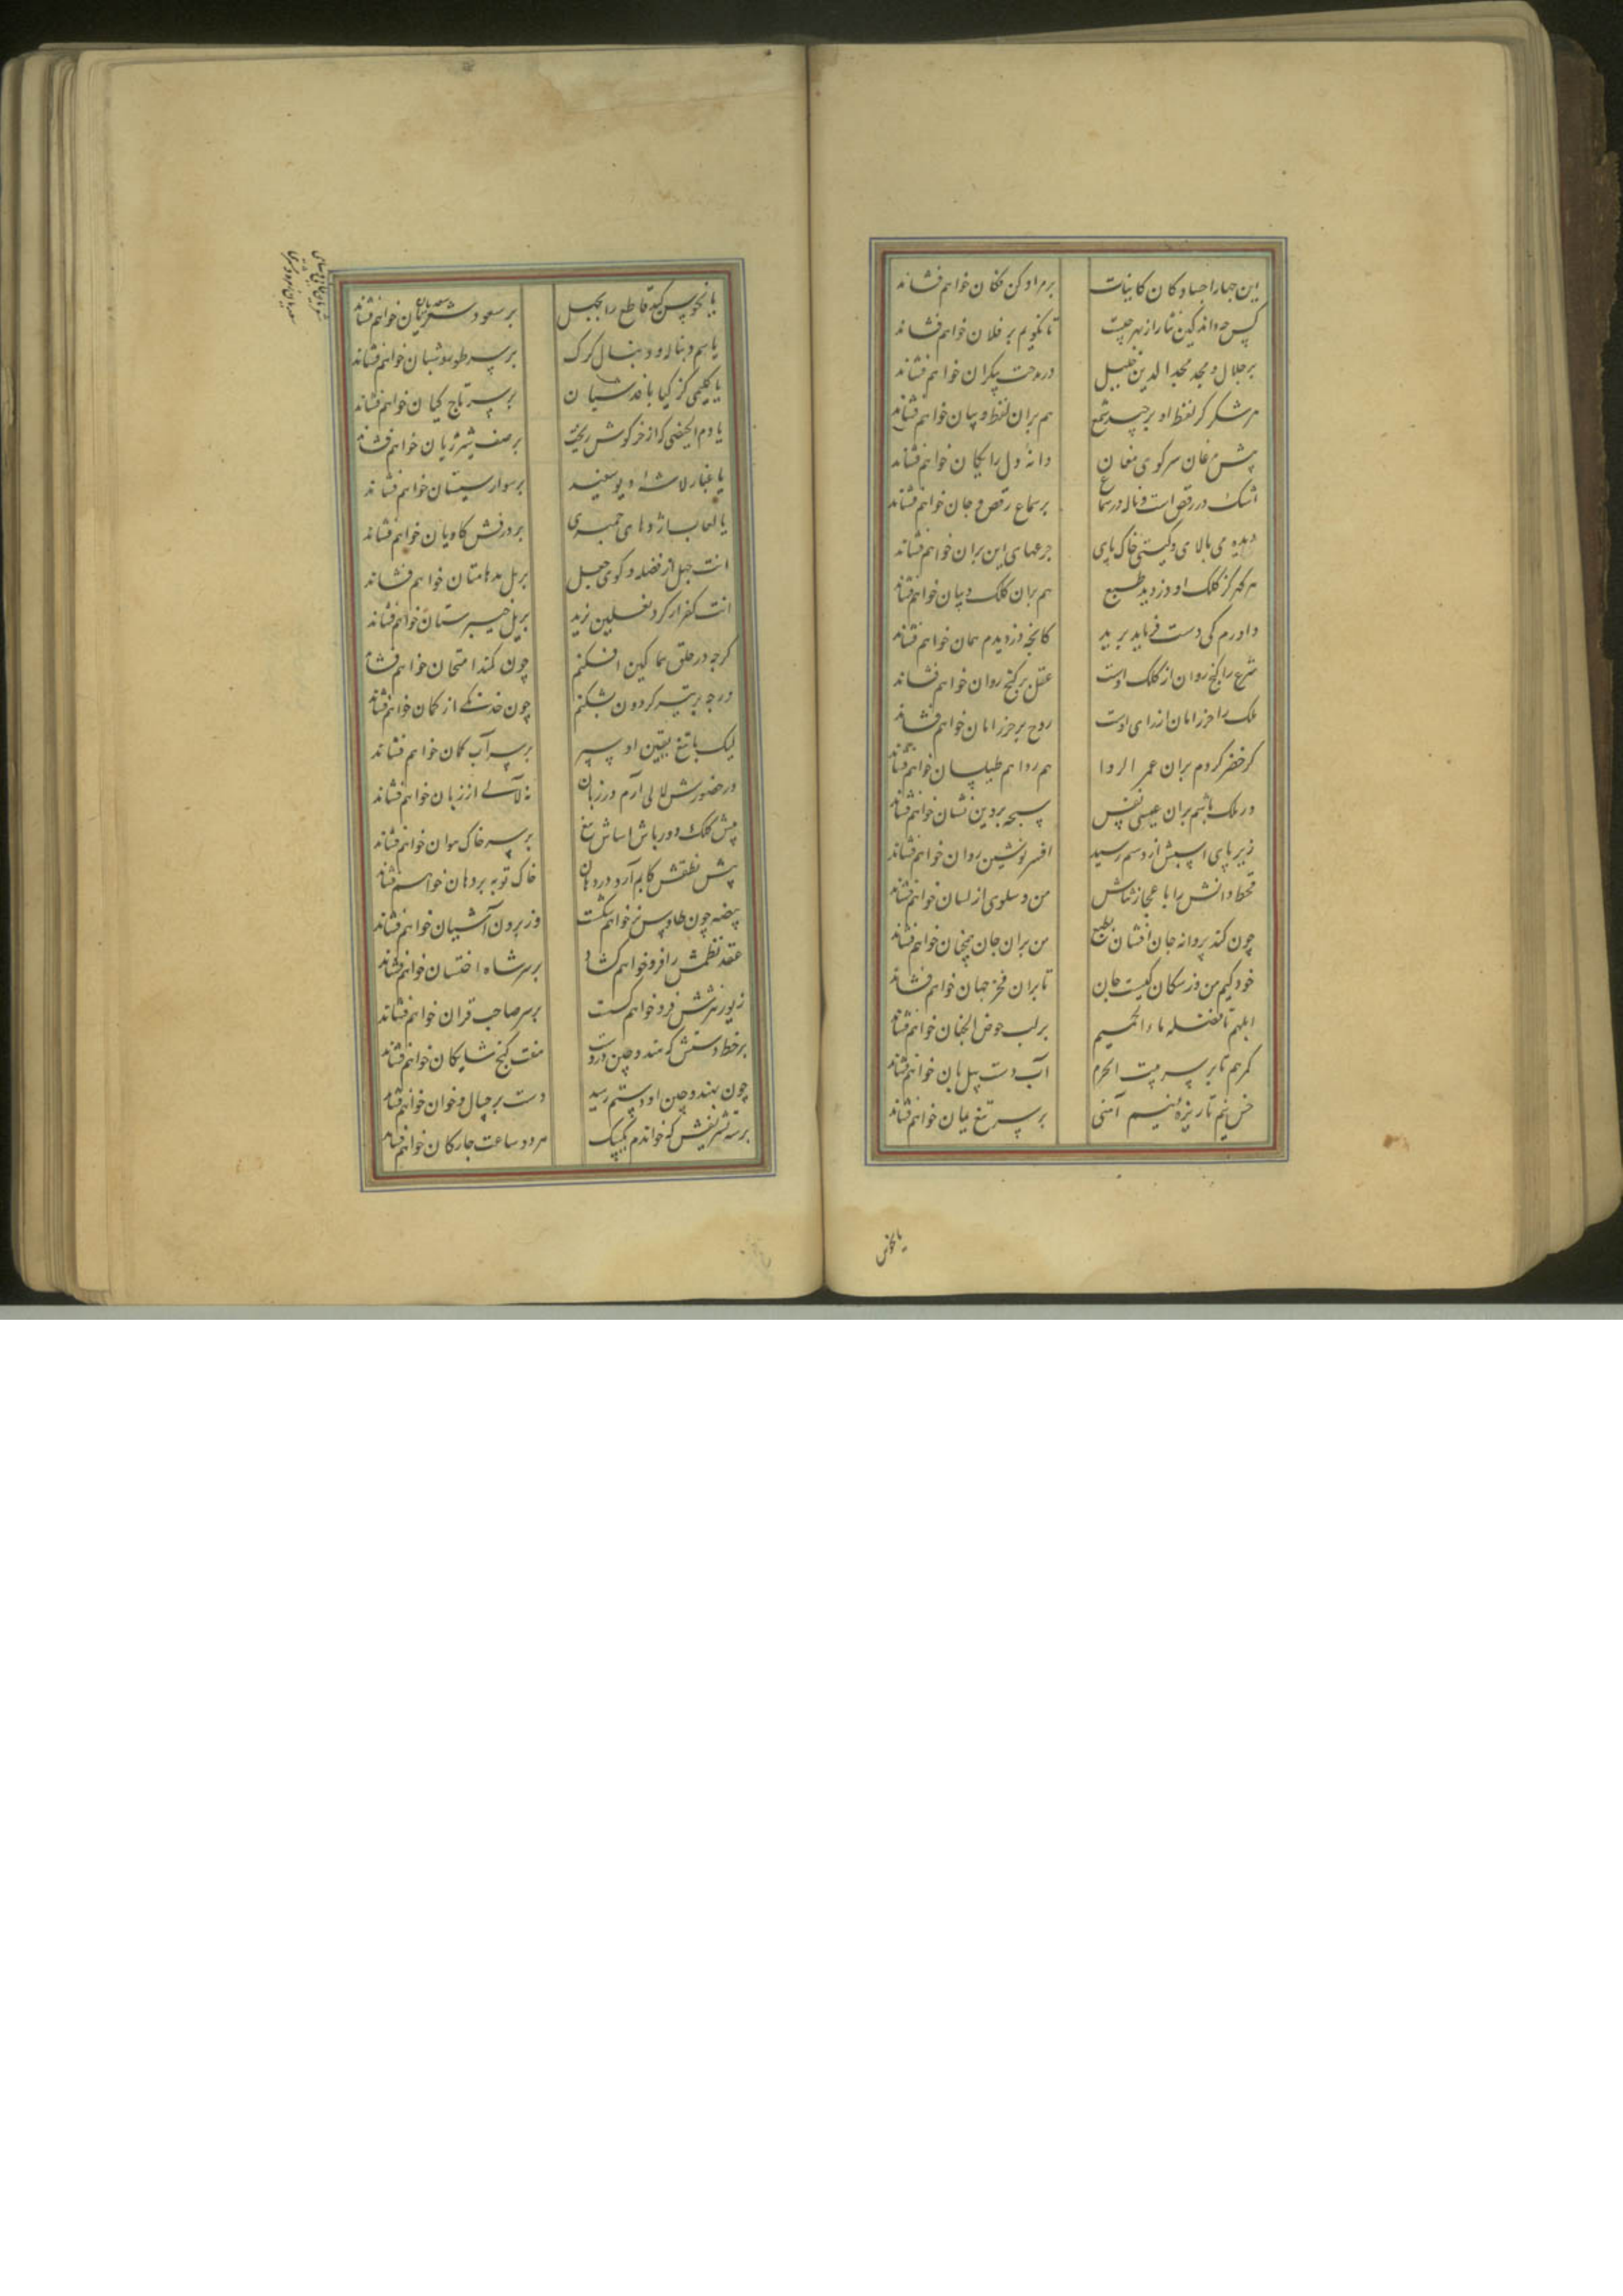 این جهار اجساد کان کاینات برمراد کن فکان خواهم فشاند
کس چه داند کین نثار از بهر چیست تا نکویم بر فلان خواهم فشاند
بر جلال و مجد مجد الدین خلیل در مدحت بیکران خواهم فشاند
هر شکر کز لفظ او برچید سمع هم بران لفظ و بیان خواهم فشاند
پیش مرغان سر کوی مغان دانه دل رایکان خواهم فشاند
اشک در رقص است و ناله در سماع بر سماع و رقص جان خواهم فشاند
دیده می بالای و کیتی خاک پای جرعهای این بران خواهم فشاند
هر کهر کز کلک او دزدید طبع هم بران کلک و بیان خواهم فشاند
داورم کی دست فرماید برید کانچه دزدیدم همان خواهم فشاند
شرع را کنج روان از کلک اوست عقل بر کنج روان خواهم فشاند
ملک را حرز امان از رای اوست روح بر حرز امان خواهم فشاند
کر خضر کردم بران عمر الردا هم ردا هم طیلسان خواهم فشاند
ور ملک باشم بران عیسی نفس سبحه پروین نشان خواهم فشاند
زیر پای اسبش از دستم رسید افسر نوشین روان خواهم فشاند
قحط دانش را باعجاز ثناش من و سلوی از لسان خواهم فشاند
چون کند پروانه جان افشان بطبع من بران جان همچنان خواهم فشاند
خود کیم من وز سکان کیست جان تا بران فخر جهان خواهم فشاند
ابلهم تا فضله ماء الحمیم بر لب حوض الجنان خواهم فشاند
کمرهم تا بر سر بیت الحرم آب دست پیل بان خواهم فشاند
خس نیم تا ریزه سیم آهنی بر سر تیغ یمان خواهم فشاند
یا نحوس
یا نحوس کید قاطع را بجهل بر سعود شعریان خواهم فشاند
یا سم و دنباله و دنبال کرک بر سر طور و شبان خواهم فشاند
یا کلیمی کز کیا بافد شبان بر سر تاج کیان خواهم فشاند
یا دم الحیضی که از خرکوش ریخت بر صف شیر ژیان خواهم فشاند
یا غبار لاشه دیو سفید بر سوار سیستان خواهم فشاند
یا لعاب اژدهای حمیری بر درفش کاویان خواهم فشاند
انت جهل از فضله کوی جهل بر بل خواهم فشاند
انت کفر ار کرد نعلین یزید خواهم فشاند
کرچه در حلق سماکین افکنم چون کمند امتحان خواهم فشاند
ورچه بر تیر کردون بشکنم چون خدنکی از کمان خواهم فشاند
لیک با تیغ یقین او سپر بر سر آب کمان خواهم فشاند
در حضورش لالی آرم در زبان نه لآلی از زبان خواهم فشاند
پیش کلک دورباش اساش تیغ بر سر خاک هوان خواهم فشاند
پیش نطقش کابم آرد در دهان خاک توبه بر دهان خواهم فشاند
بیضه چون طاوس نر خواهم شکست وز برون آشیان خواهم فشاند
عقد نظمش را فرو خواهم کشاد بر سر شاه اخستان خواهم فشاند
زیور نثرش فرو خواهم کسست بر سر صاحب قران خواهم فشاند
بر خط دستش که هند و چین دروست هفت کنج شایکان خواهم فشاند
چون بهند و چین او دستم رسید دست بر چیپال و خوان خواهم فشاند
بر سه تشریفش که خواندم یک بیک هر دو ساعت جار کان خواهم فشاند